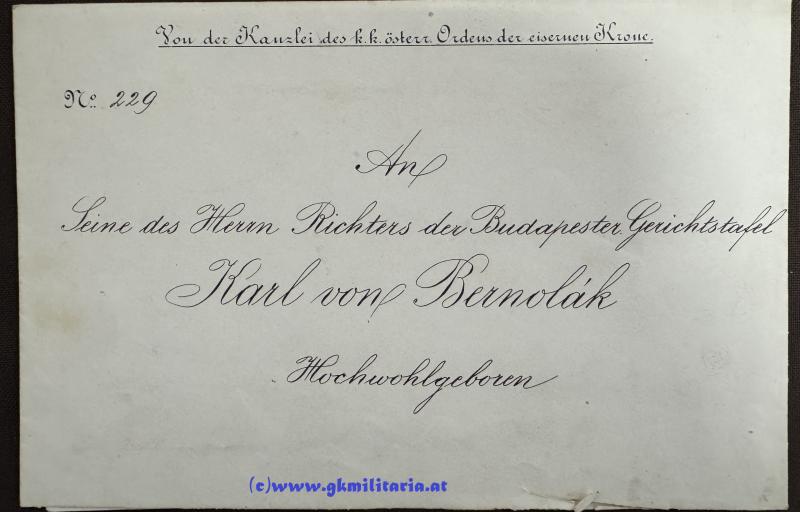 Von der Kanzlei des k.k. österr. Ordens der eisernen Krone.
No. 229
An
Seine des Herrn Richters der Budapester Gerichtstafel
Karl von Bernolák
Hochwohlgeboren
(c)www.gkmilitaria.at